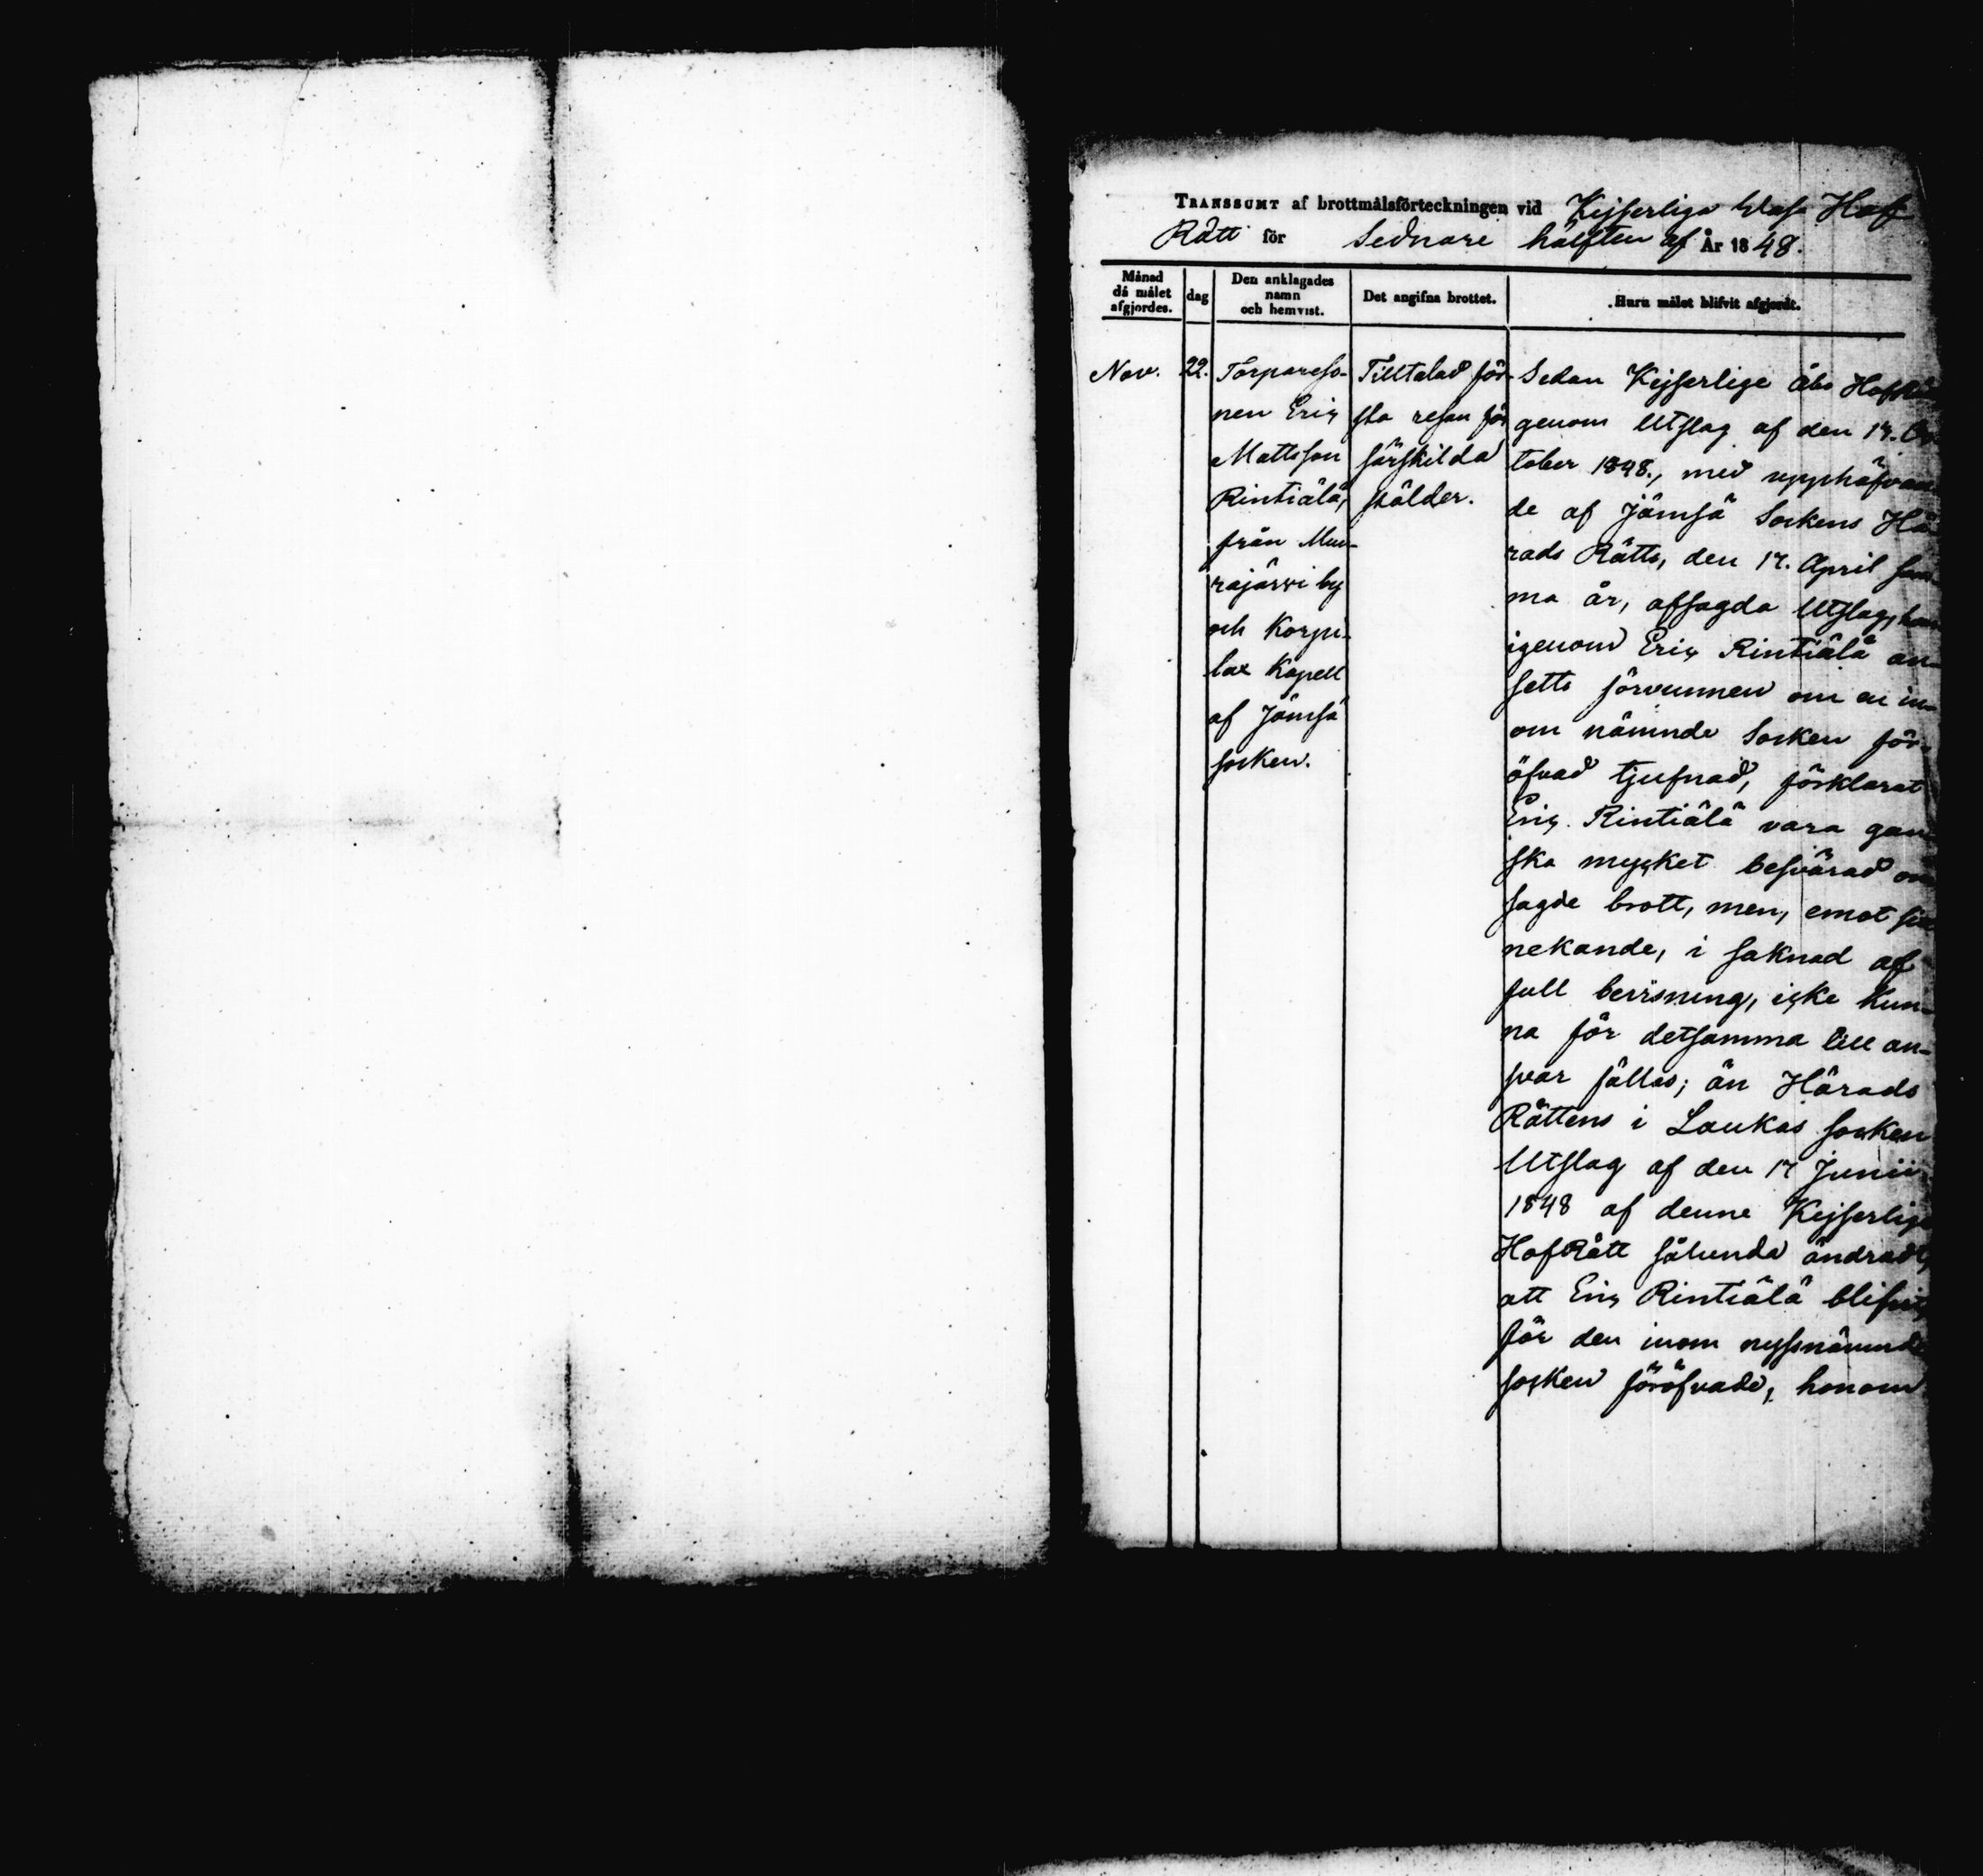 TRANSSUMT af brottmålsförteckningen vid Kejserliga Wasa Hof
Rätt för Sednare hälften af År 1848.
Månad då målet afgjordes.
dag
Den anklagades namn och hemvist.
Det angifna brottet.
Huru målet blifvit afgjordt.
Nov.
22.
Torpareso-
nen Eric
Mattsson
Rintiälä,
från Muu-
rajärvi by
och Korpi-
lax Kapell
af Jämsä
socken.
Tilltalad för-
sta resan för
särskilda
stölder.
Sedan Kejserlige Åbo HofRätt
genom Utslag af den 17. Oc-
tober 1848., med upphäfvan-
de af Jämsä Sockens Hä-
rads Rätts, den 17. April sam-
ma år, afsagda Utslag, har-
igenom Eric Rintiälä an-
setts förvunnen om en in-
om nämnde Socken för-
öfvad tjufnad, förklarat
Eric Rintiälä vara gan-
ska mycket besvärad om
sagde brott, men, emot sitt
nekande, i saknad af
full bevisning, icke kun-
na för detsamma till an-
svar fällas; än Härads
Rättens i Laukas socken
Utslag af den 17 Junii
1848 af denne Kejserlige
HofRätt sålunda ändradt,
att Eric Rintiälä blifvit,
för den inom nyssnämnde
socken föröfvade, honom